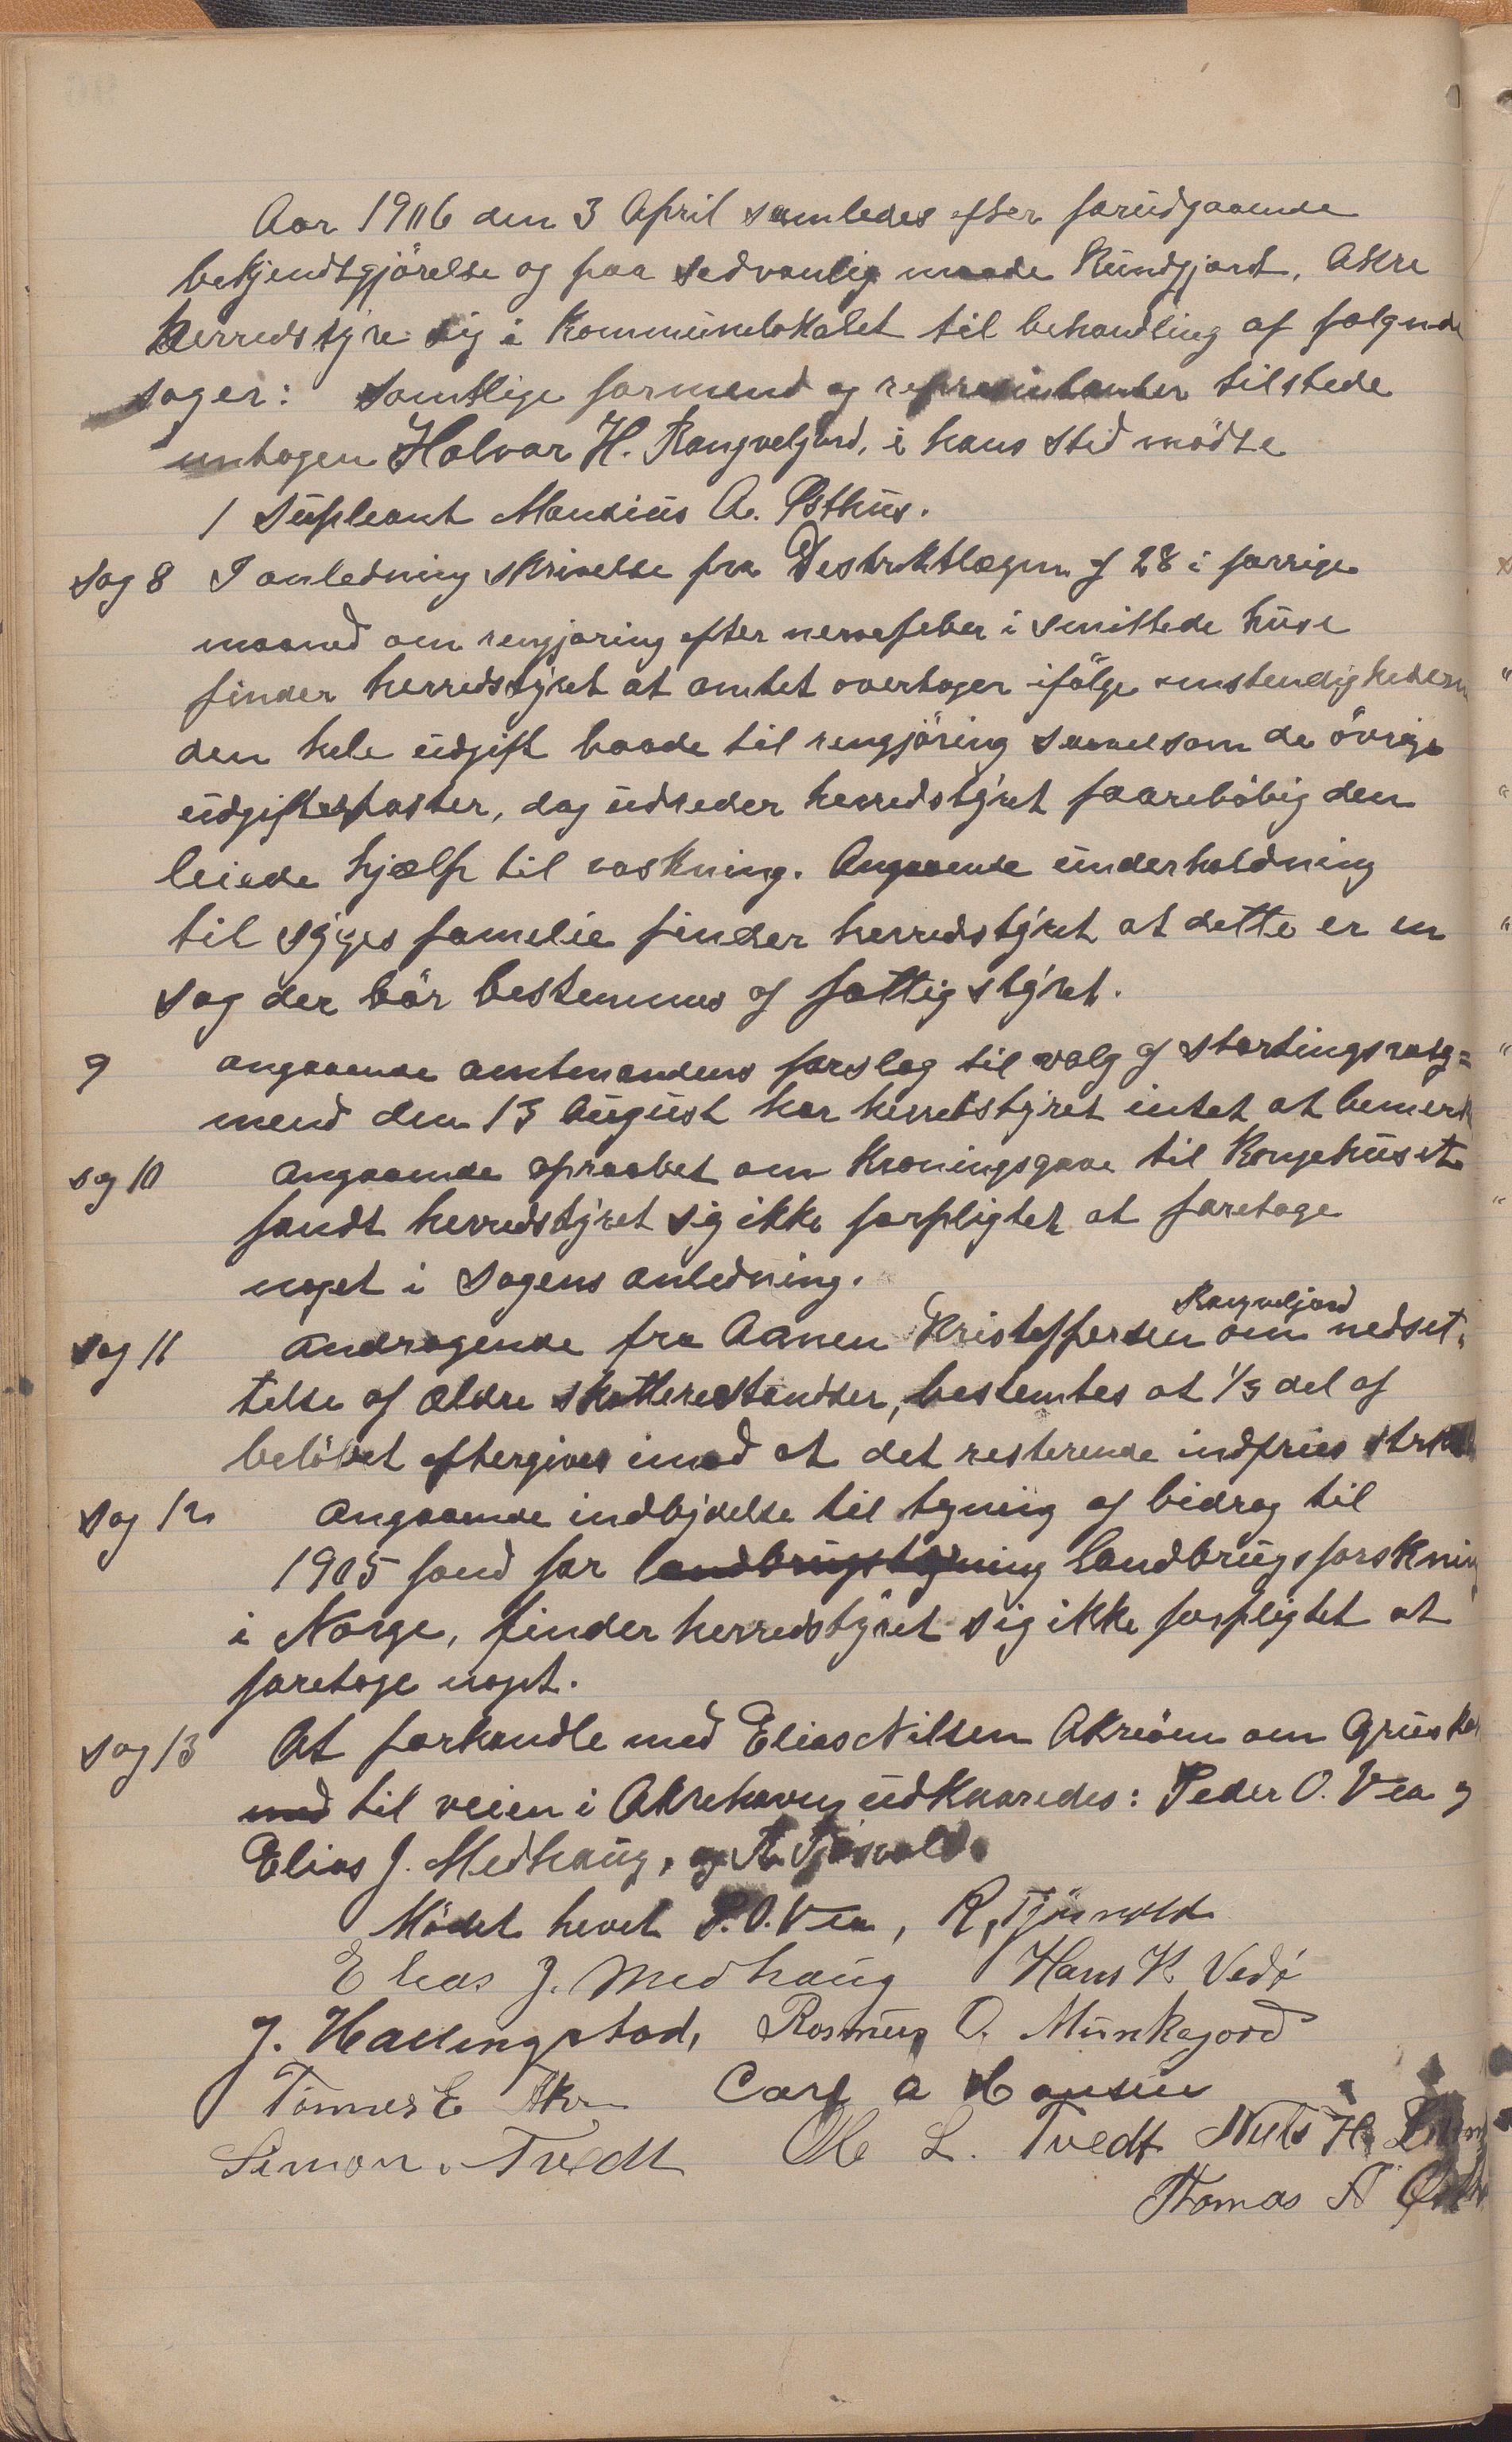 Aar 1906 den 3 April samledes efter forudgaaende
bekjendtgjörelse og paa sedvanlig maade Kundgjort, Akre
herredstyre sig i Kommunelokalet til behandling af følgende
sager: Samtlige formend og representanter tilstede
untagen Halvar H. Rangveljord, i hans sted mödte
1 Supleant Mandius A. Østhus.
Sag 8 I anledning skrivelse fra Destriktlægen af 28 i forrige
maaned om rengjøring efter nervefeber i smittede huse
finder herredstyret at amtet overtager ifölge omstendighederne
den hele udgift baade til rengjöring saavelsom de övrige
udgiftsposter, dog udreder herredstyret foorelöbig den
leiede hjælp til vaskning. Angaaende underholdning
til syges familie finder herredstyret at dette er en
sag der bör bestemmes af fattigstyret.
9 angaaende amtmandens forslag til valg af stortingsvalg=
mend den 13 August har herredstyret intet at bemerk
sag 10 Angaaende opraabet om Kroningsgave til Kongehuset
fandt herredstyret sig ikke forpligtet at foretage
noget i sagens anledning.
Rangveljord
sag 11 Andragende fra Aanen Kristoffersen om nedset-
telse af ældre skatterestandser, bestemtes at 1/3 del af
belöbet eftergives imod at det resterende indfries
sag 12 Angaaende indbydelse til tegning af bidrag til
1905 fond for landbrugstegning Landbrugsforskning
i Norge, finder herredstyret sig ikke forpligtet at
foretage noget.
sag 13 At forhandle med Elias Nilsen Akreöen om Grus
med til veien i Akrehavn udkaaredes: Peder O. Vea og
Elias J. Medhaug, og R. Tjösvold.
Mödet hevet P. O. Vea, R. Tjösvold
Elias J. Medhaug Hans K. Vedö
J. Hallingstad, Rasmus O. Munkejord
Tönnes E Akre Carl A Hansen
Simon. Tvedt Ole L. Tvedt Niels H.
Thomas A